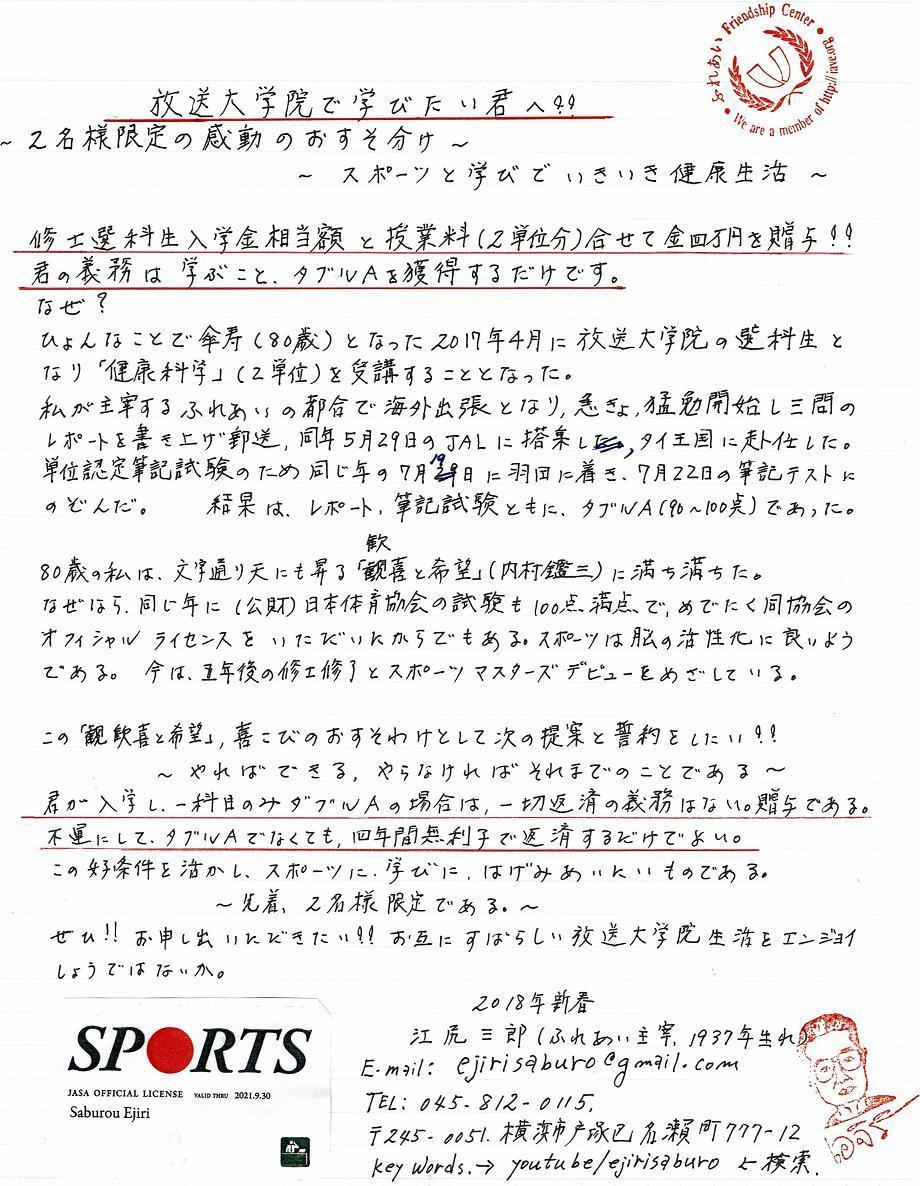 ふれあい Friendship Center
We are a member of http://javeorg
放送大学院で学びたい君へ!!
~2名様限定の感動のおすそ分け~
~ スポーツと学びでいきいき健康生活 ~
修士選科生入学金相当額と授業料(2単位分)合せて金四万円を贈与!!
君の義務は学ぶこと、ダブルAを獲得するだけです。
なぜ?
ひょんなことで傘寿(80歳)となった2017年4月に放送大学院の選科生と
なり「健康科学」(2単位)を受講することとなった。
私が主宰するふれあいの都合で海外出張となり,急きょ,猛勉開始し三問の
レポートを書き上げ郵送,同年5月29日のJALに搭乗し,タイ王国に赴任した。
単位認定筆記試験のため同じ年の7月19日に羽田に着き、7月22日の筆記テストに
のぞんだ。 結果は、レポート,筆記試験ともに、ダブルA(90~100点)であった。
歓
80歳の私は、文字通り天にも昇る「観喜と希望」(内村鑑三)に満ち満ちた。
なぜなら、同じ年に(公財)日本体育協会の試験も100点、満点で,めでたく同協会の
オフィシャル ライセンスをいただいたからでもある。スポーツは脳の活性化に良いよう
である。 今は、五年後の修士修了とスポーツマスターズデビューをめざしている。
この「観歓喜と希望」,喜こびのおすそわけとして次の提案と誓約をしたい!!
~ やればできる,やらなければそれまでのことである ~
君が入学し、一科目のみダブルAの場合は,一切返済の義務はない。贈与である。
不運にして、ダブルAでなくても,四年間無利子で返済するだけでよい。
この好条件を活かし、スポーツに、学びに、はげみあいたいものである。
~先着、2名様限定である。~
ぜひ!! お申し出いただきたい!! お互にすばらしい放送大学院生活をエンジョイ
しようではないか。
2018年新春
江尻三郎(ふれあい主宰,1937年生れ)
E-mail: ejirisaburo@gmail.com
TEL: 045-812-0115,
〒245-0051. 横浜市戸塚区名瀬町777-12
key words.→ youtube/ejirisaburo ←検索.
SPORTS
JASA OFFICIAL LICENSE VALID THRU 2021.9.30
Saburou Ejiri